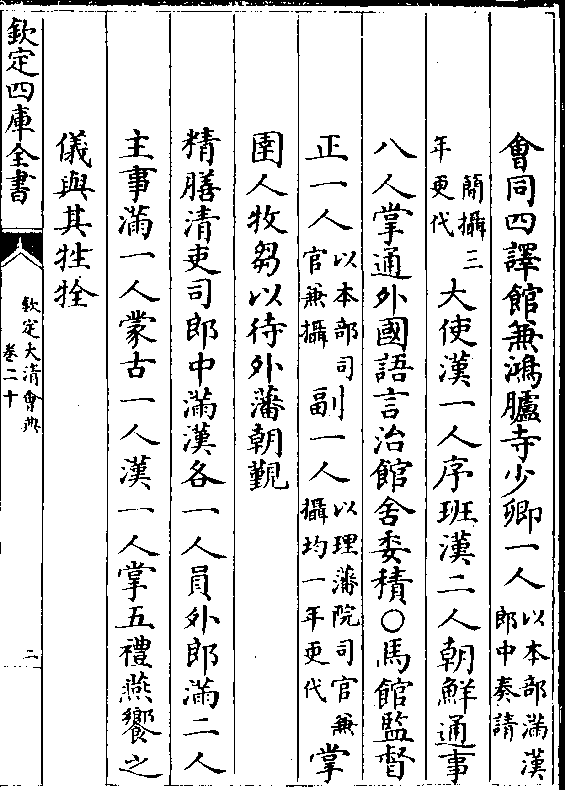 會同四譯館兼鴻臚寺少卿一人以本部滿漢郎中奏請
簡攝三年更代大使漢一人序班漢二人朝鮮通事
八人掌通外國語言治館舍委積○馬館監督
正一人以本部司官兼攝副一人以理藩院司官兼攝均一年更代掌
圉人牧芻以待外藩朝覲
精膳清吏司郎中滿漢各一人員外郎滿二人
主事滿一人蒙古一人漢一人掌五禮燕饗之
儀與其牲牷
欽定四庫全書
欽定大清會典
卷二十
二